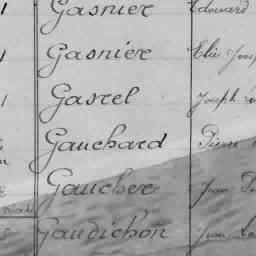 Gasnier Edouard
Gasnier Elie Jos
Gastel Joseph
Gauchard Pierre
Gaucher Jean
Gaudichon Jean